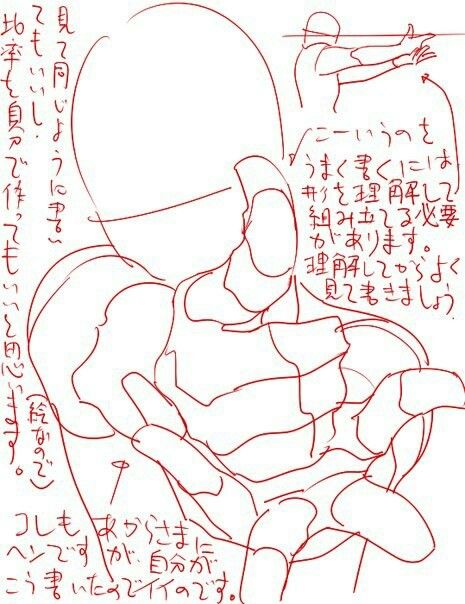 見て同じように書い
てもいいし、
比率を自分で作ってもいいと思います。
(絵なので)
こーいうのを
うまく書くには
形を理解して
組み立てる必要
があります。
理解してからよく
見て書きましょう.
コレも あからさまに
ヘンですが、自分が
こう書いたのでイイのです。